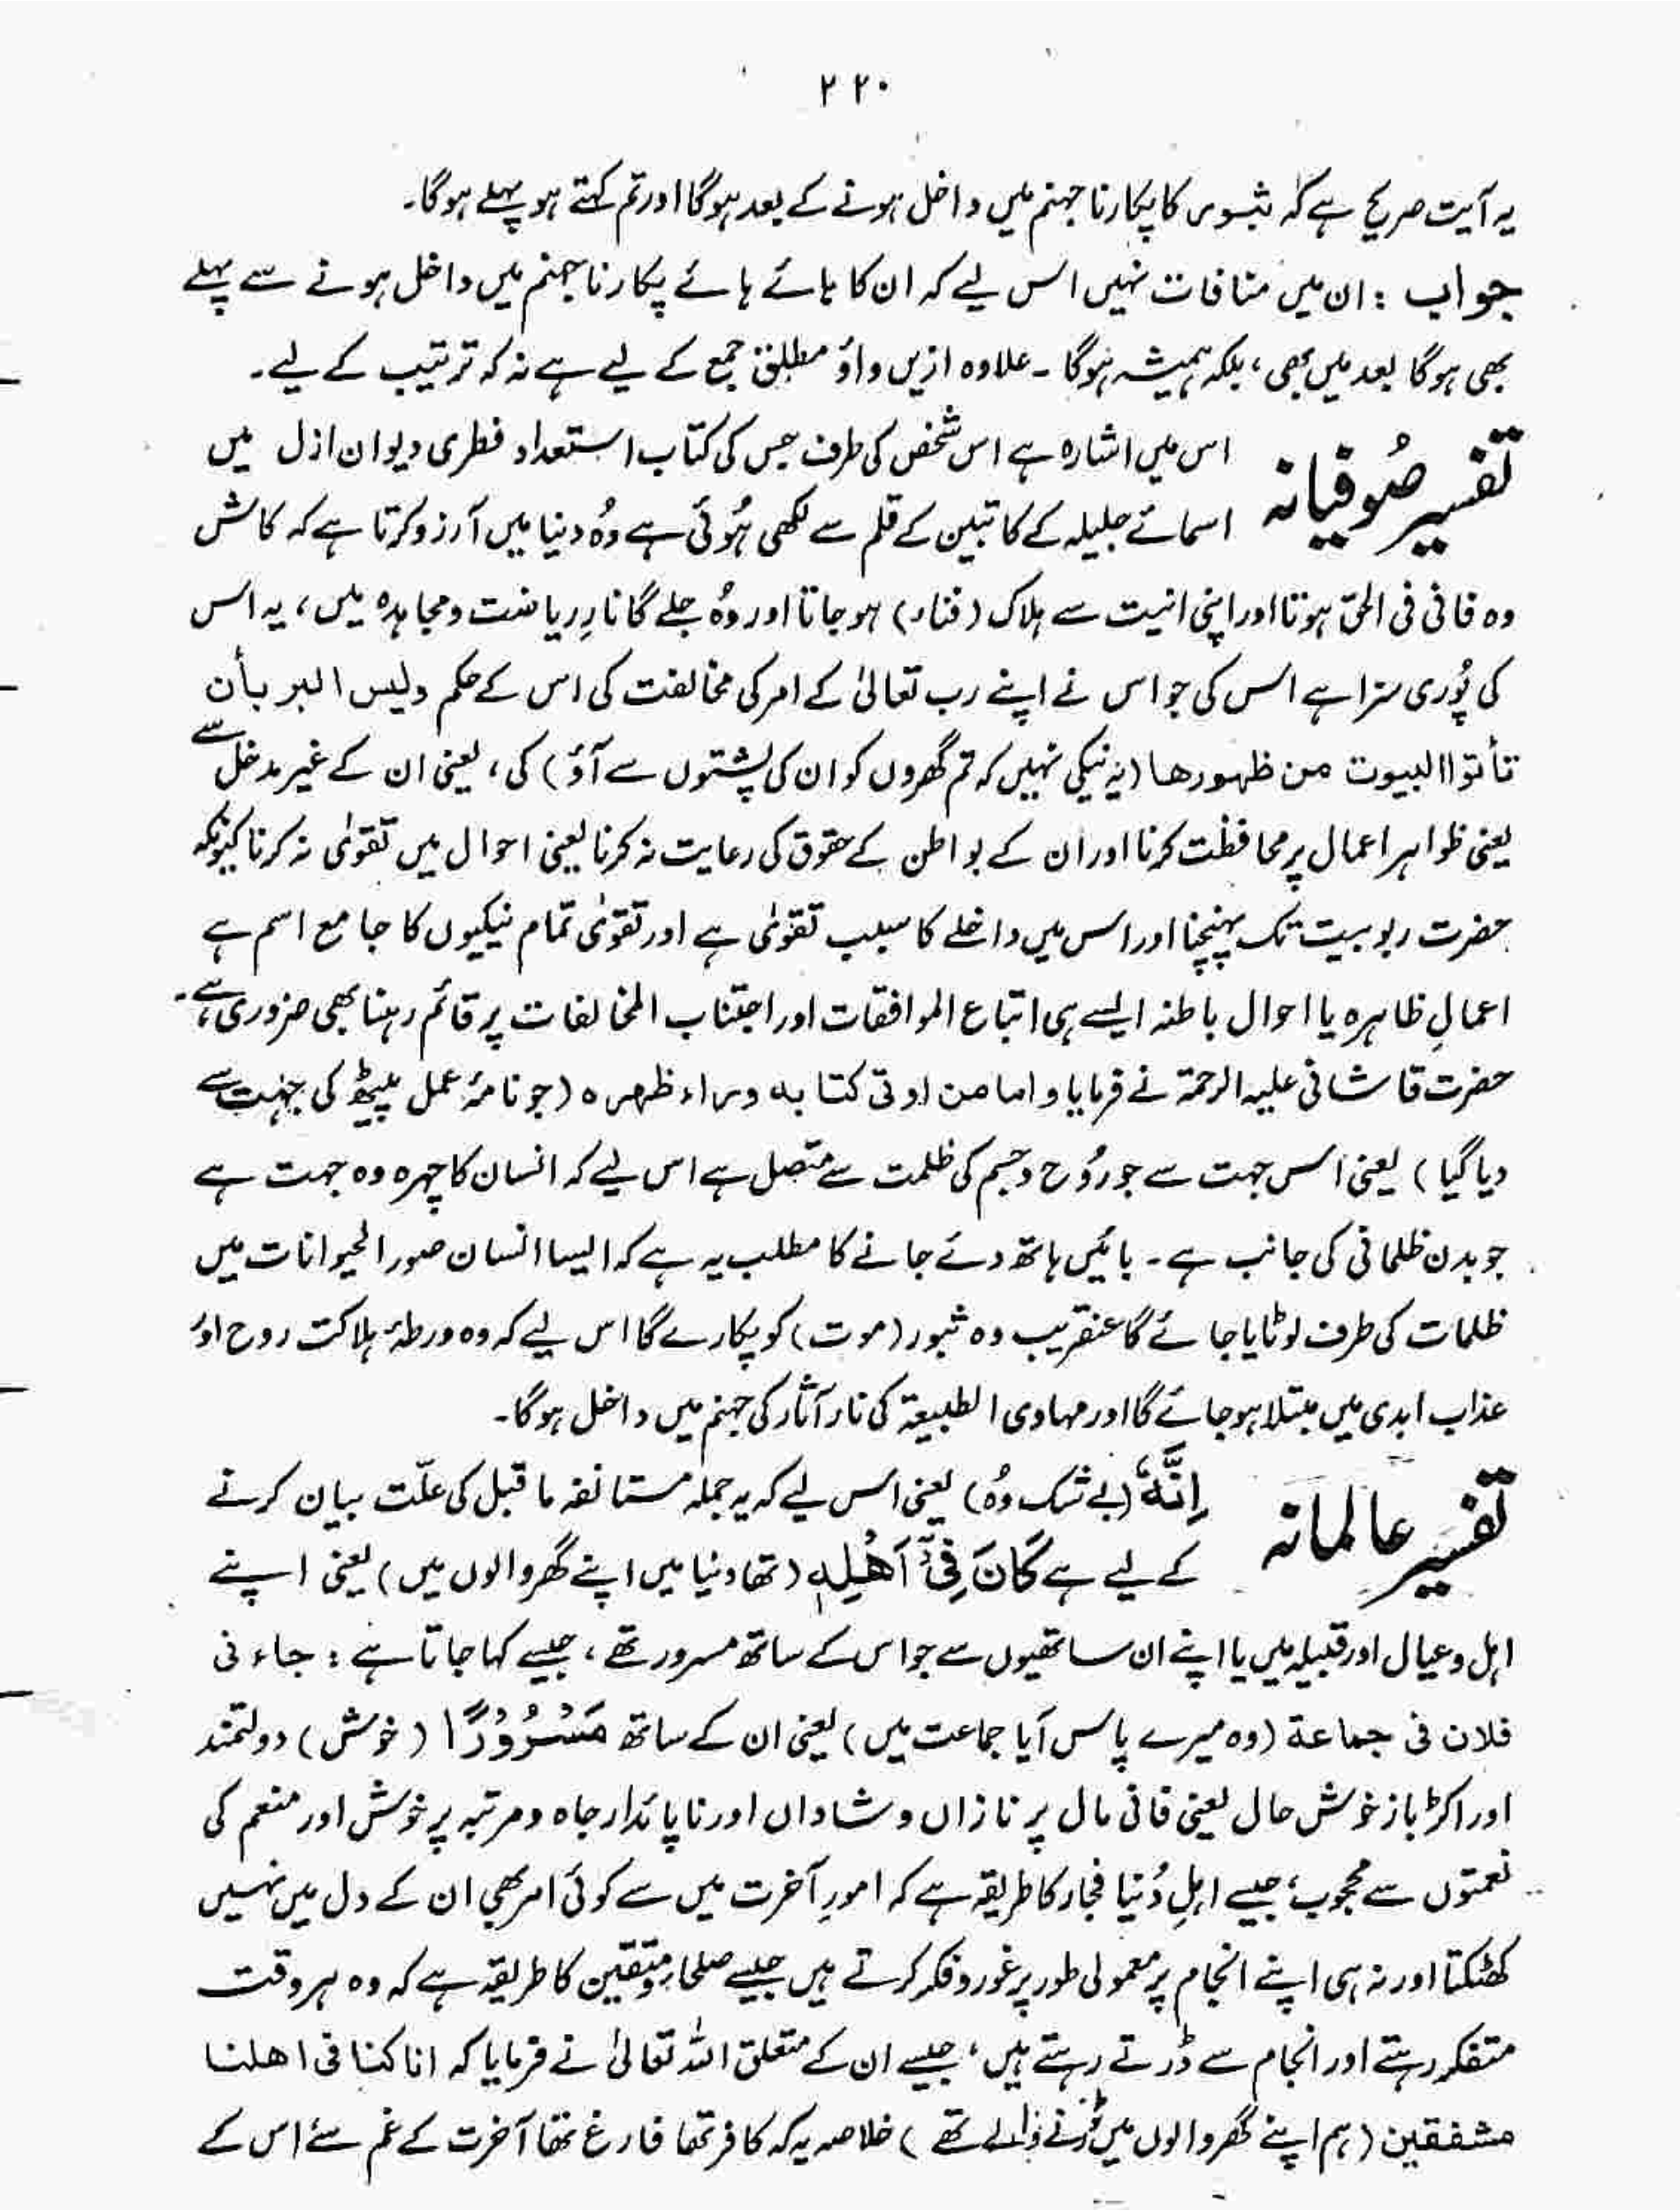 ۲۲۰
یہ آیت صریح ہے کہ ثبور کا پکارنا جہنم میں داخل ہونے کے بعد ہوگا اور تم کہتے ہو پہلے ہوگا۔
جواب : ان میں منافات نہیں اس لیے کہ ان کا ہائے ہائے پکارنا جہنم میں داخل ہونے سے پہلے
بھی ہوگا بعد میں بھی، بلکہ ہمیشہ ہوگا ۔ علاوہ ازیں واؤ مطلق جمع کے لیے ہے نہ کہ ترتیب کے لیے۔
تفسیر صُوفیانہ اس میں اشارہ ہے اس شخص کی طرف جس کی کتاب استعداد فطری دیوان ازل میں
اسمائے جلیلہ کے کاتبین کے قلم سے لکھی ہُوئی ہے وُہ دنیا میں آرزو کرتا ہے کہ کاش
وہ فانی فی الحق ہوتا اور اپنی انیت سے ہلاک (فناء) ہو جاتا اور وُہ جلے گا نارِ ریاضت و مجاہدہ میں، یہ اس
کی پُوری سزا ہے اس کی جو اس نے اپنے رب تعالیٰ کے امر کی مخالفت کی اس کے حکم ولیس البر بأن
تأتوا البیوت من ظہورھا (یہ نیکی نہیں کہ تم گھروں کو ان کی پشتوں سے آؤ) کی، یعنی ان کے غیر مدخل سے
یعنی ظواہر اعمال پر محافظت کرنا اور ان کے بواطن کے حقوق کی رعایت نہ کرنا یعنی احوال میں تقوٰی نہ کرنا کیونکہ
حضرت ربوبیت تک پہنچنا اور اس میں داخلے کا سبب تقوٰی ہے اور تقوٰی تمام نیکیوں کا جامع اسم ہے
اعمالِ ظاہرہ یا احوال باطنہ ایسے ہی اتباع الموافقات اور اجتناب المخالفات پر قائم رہنا بھی ضروری ہے۔
حضرت قاشانی علیہ الرحمۃ نے فرمایا و اما من اوتی کتابہ وراء ظھرہ (جو نامۂ عمل پیٹھ کی جہت سے
دیا گیا) یعنی اس جہت سے جو رُوح و جسم کی ظلمت سے متصل ہے اس لیے کہ انسان کا چہرہ وہ جہت ہے
جو بدن ظلمانی کی جانب ہے ۔ بائیں ہاتھ دئے جانے کا مطلب یہ ہے کہ ایسا انسان صور الحیوانات میں
ظلمات کی طرف لوٹایا جائے گا عنقریب وہ ثبور (موت) کو پکارے گا اس لیے کہ وہ ورطۂ ہلاکت روح اور
عذاب ابدی میں مبتلا ہو جائے گا اور مہاوی الطبیعۃ کی نار آثار کی جہنم میں داخل ہوگا۔
تفسیر عالمانہ اِنَّهٗ (بے شک وُہ) یعنی اس لیے کہ یہ جملہ مستانفہ ماقبل کی علّت بیان کرنے
کے لیے ہے كَانَ فِیْٓ اَهْلِهٖ (تھا دنیا میں اپنے گھر والوں میں) یعنی اپنے
اہل و عیال اور قبیلہ میں یا اپنے ان ساتھیوں سے جو اس کے ساتھ مسرور تھے، جیسے کہا جاتا ہے : جاء نی
فلان فی جماعۃ (وہ میرے پاس آیا جماعت میں) یعنی ان کے ساتھ مَسْرُوْرًا (خوش) دولتمند
اور اکڑباز خوش حال یعنی فانی مال پر نازاں و شاداں اور ناپائدار جاہ و مرتبہ پر خوش اور منعم کی
نعمتوں سے محجوب، جیسے اہلِ دُنیا فجار کا طریقہ ہے کہ امورِ آخرت میں سے کوئی امر بھی ان کے دل میں نہیں
کھٹکتا اور نہ ہی اپنے انجام پر معمولی طور پر غور و فکر کرتے ہیں جیسے صلحاء و متقین کا طریقہ ہے کہ وہ ہر وقت
متفکر رہتے اور انجام سے ڈرتے رہتے ہیں، جیسے ان کے متعلق اللہ تعالیٰ نے فرمایا کہ انا کنا فی اھلنا
مشفقین (ہم اپنے گھر والوں میں ڈرنے والے تھے) خلاصہ یہ کہ کافر تھا فارغ تھا آخرت کے غم سے اس کے